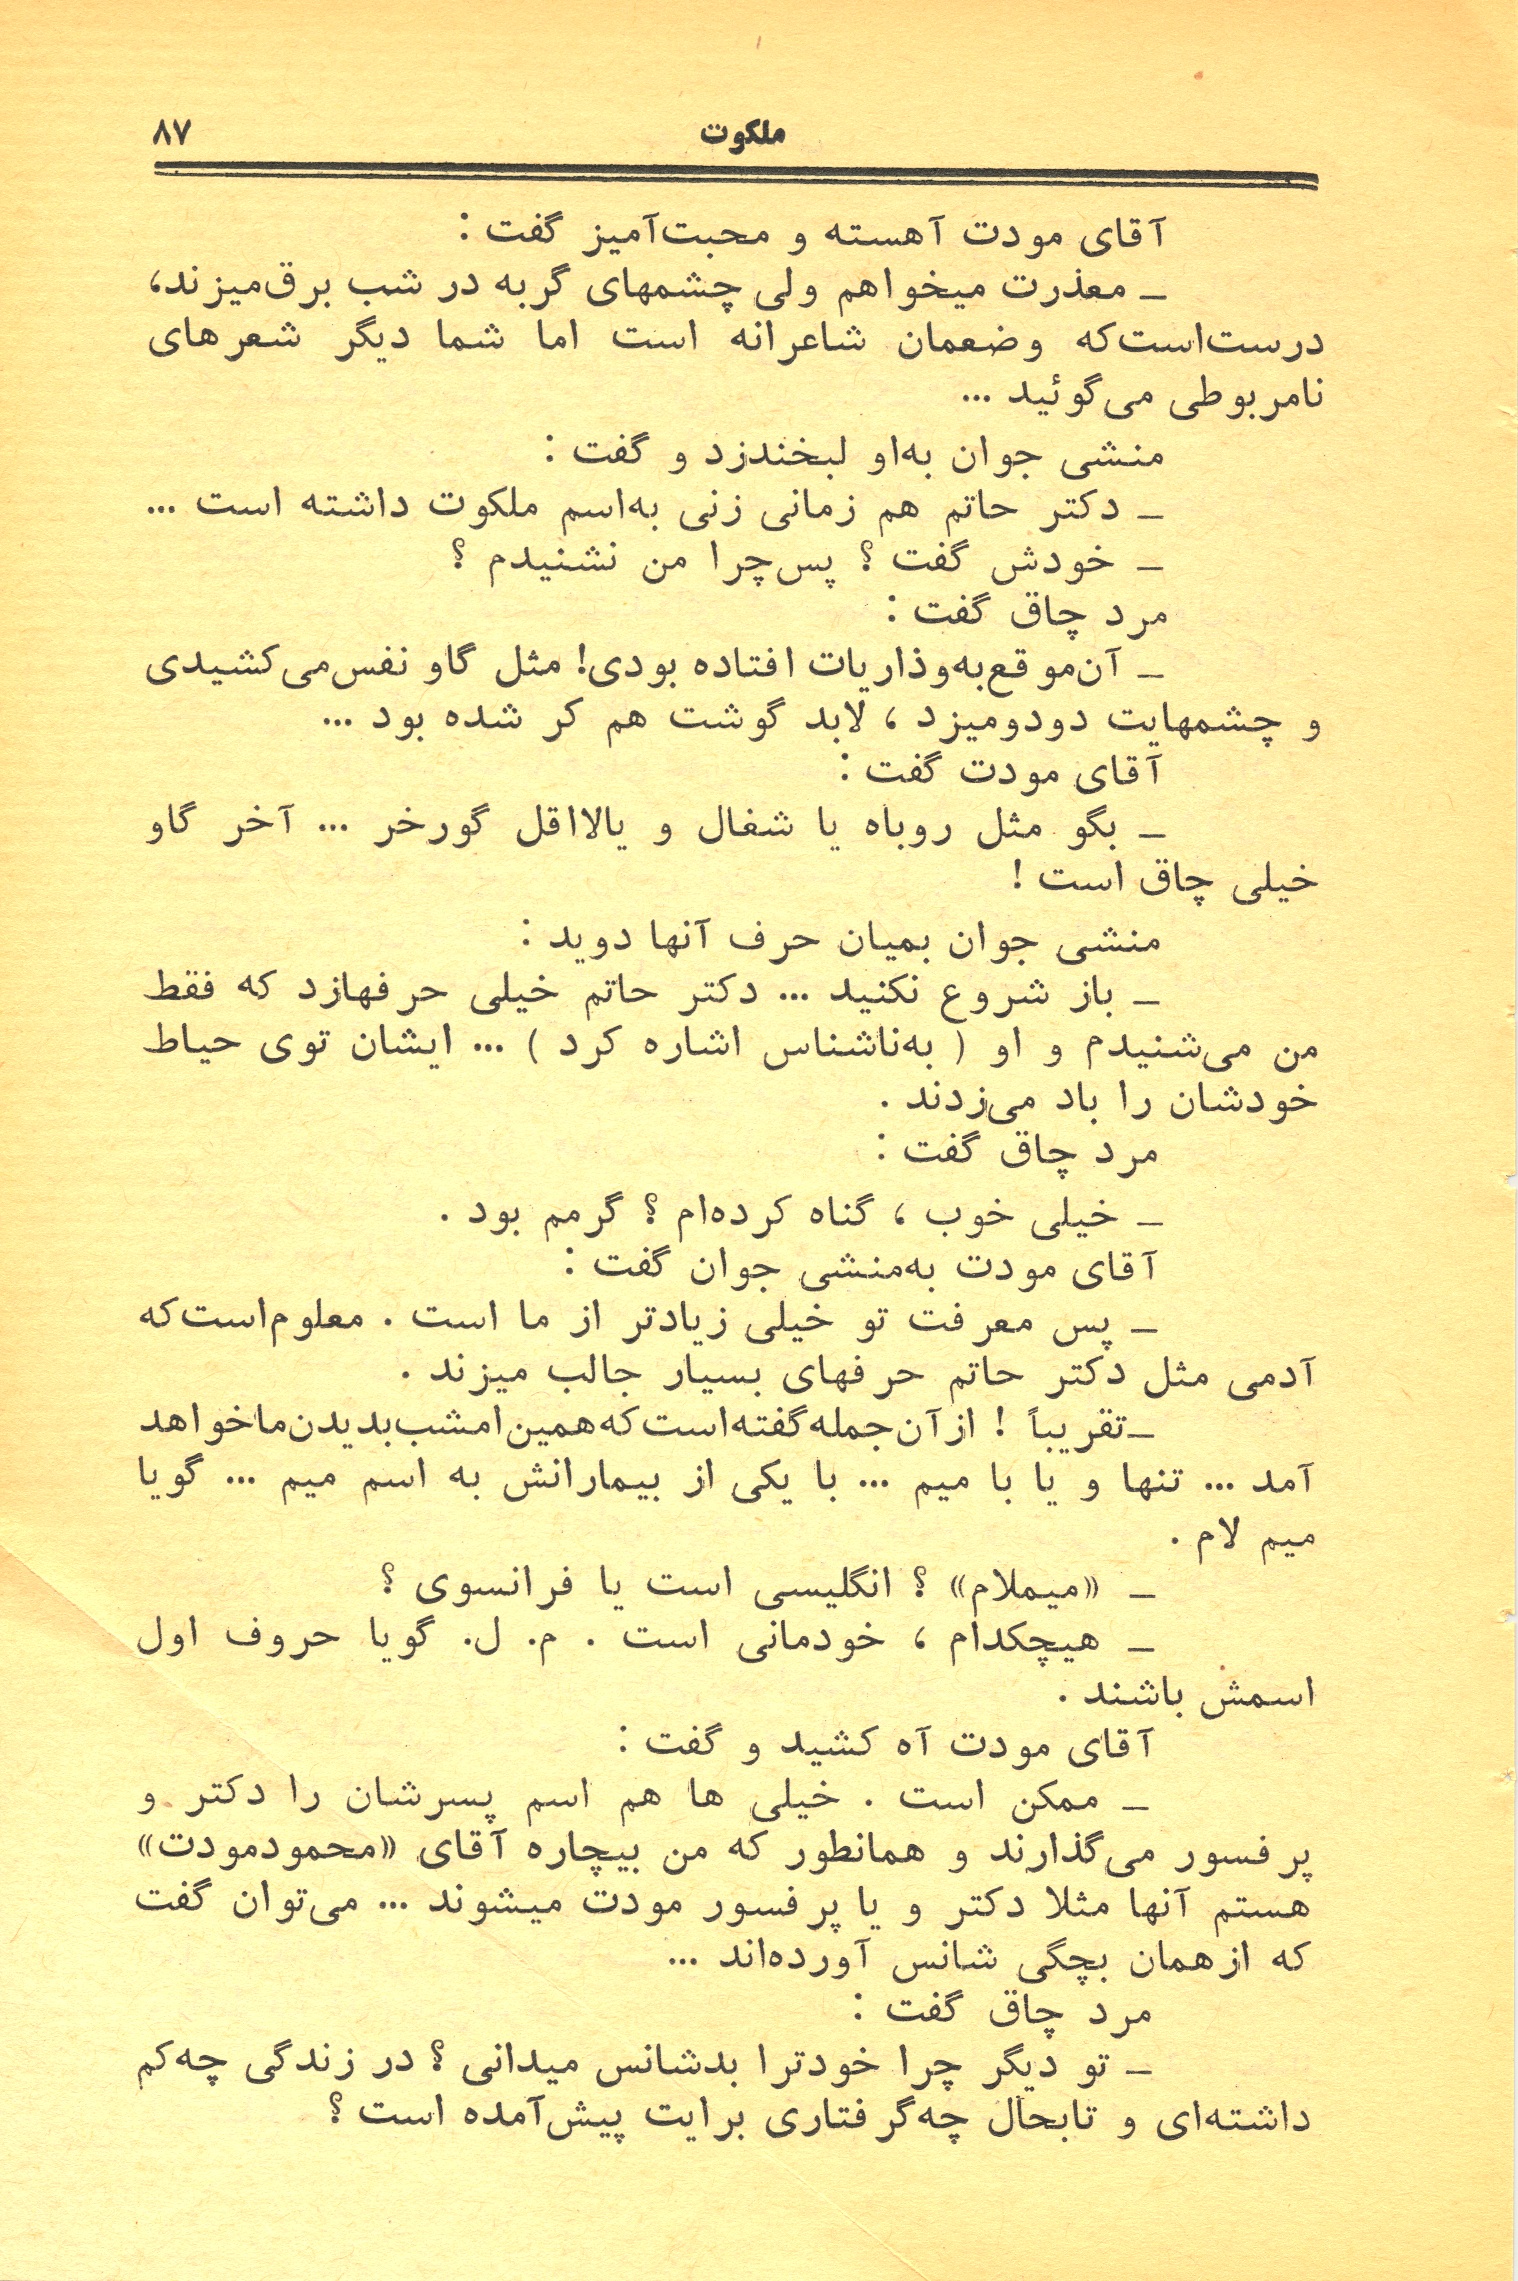 ملکوت
۸۷
آقای مودت آهسته و محبت‌آمیز گفت :
ـ معذرت میخواهم ولی چشمهای گربه در شب برق‌میزند،
درست‌است‌که وضعمان شاعرانه است اما شما دیگر شعرهای
نامربوطی می‌گوئید ...
منشی جوان به‌او لبخندزد و گفت :
ـ دکتر حاتم هم زمانی زنی به‌اسم ملکوت داشته است ...
ـ خودش گفت ؟ پس‌چرا من نشنیدم ؟
مرد چاق گفت :
ـ آن‌موقع‌به‌وذاریات افتاده بودی! مثل گاو نفس‌می‌کشیدی
و چشمهایت دودومیزد ، لابد گوشت هم کر شده بود ...
آقای مودت گفت :
ـ بگو مثل روباه یا شغال و یالااقل گورخر ... آخر گاو
خیلی چاق است !
منشی جوان بمیان حرف آنها دوید :
ـ باز شروع نکنید ... دکتر حاتم خیلی حرفهازد که فقط
من می‌شنیدم و او ( به‌ناشناس اشاره کرد ) ... ایشان توی حیاط
خودشان را باد می‌زدند .
مرد چاق گفت :
ـ خیلی خوب ، گناه کرده‌ام ؟ گرمم بود .
آقای مودت به‌منشی جوان گفت :
ـ پس معرفت تو خیلی زیادتر از ما است . معلوم‌است‌که
آدمی مثل دکتر حاتم حرفهای بسیار جالب میزند .
ـ تقریباً ! ازآن‌جمله‌گفته‌است‌که‌همین‌امشب‌بدیدن‌ماخواهد
آمد ... تنها و یا با میم ... با یکی از بیمارانش به اسم میم ... گویا
میم لام .
ـ «میملام» ؟ انگلیسی است یا فرانسوی ؟
ـ هیچکدام ، خودمانی است . م. ل. گویا حروف اول
اسمش باشند .
آقای مودت آه کشید و گفت :
ـ ممکن است . خیلی ها هم اسم پسرشان را دکتر و
پرفسور می‌گذارند و همانطور که من بیچاره آقای «محمودمودت»
هستم آنها مثلا دکتر و یا پرفسور مودت میشوند ... می‌توان گفت
که ازهمان بچگی شانس آورده‌اند ...
مرد چاق گفت :
ـ تو دیگر چرا خودترا بدشانس میدانی ؟ در زندگی چه‌کم
داشته‌ای و تابحال چه‌گرفتاری برایت پیش‌آمده است ؟